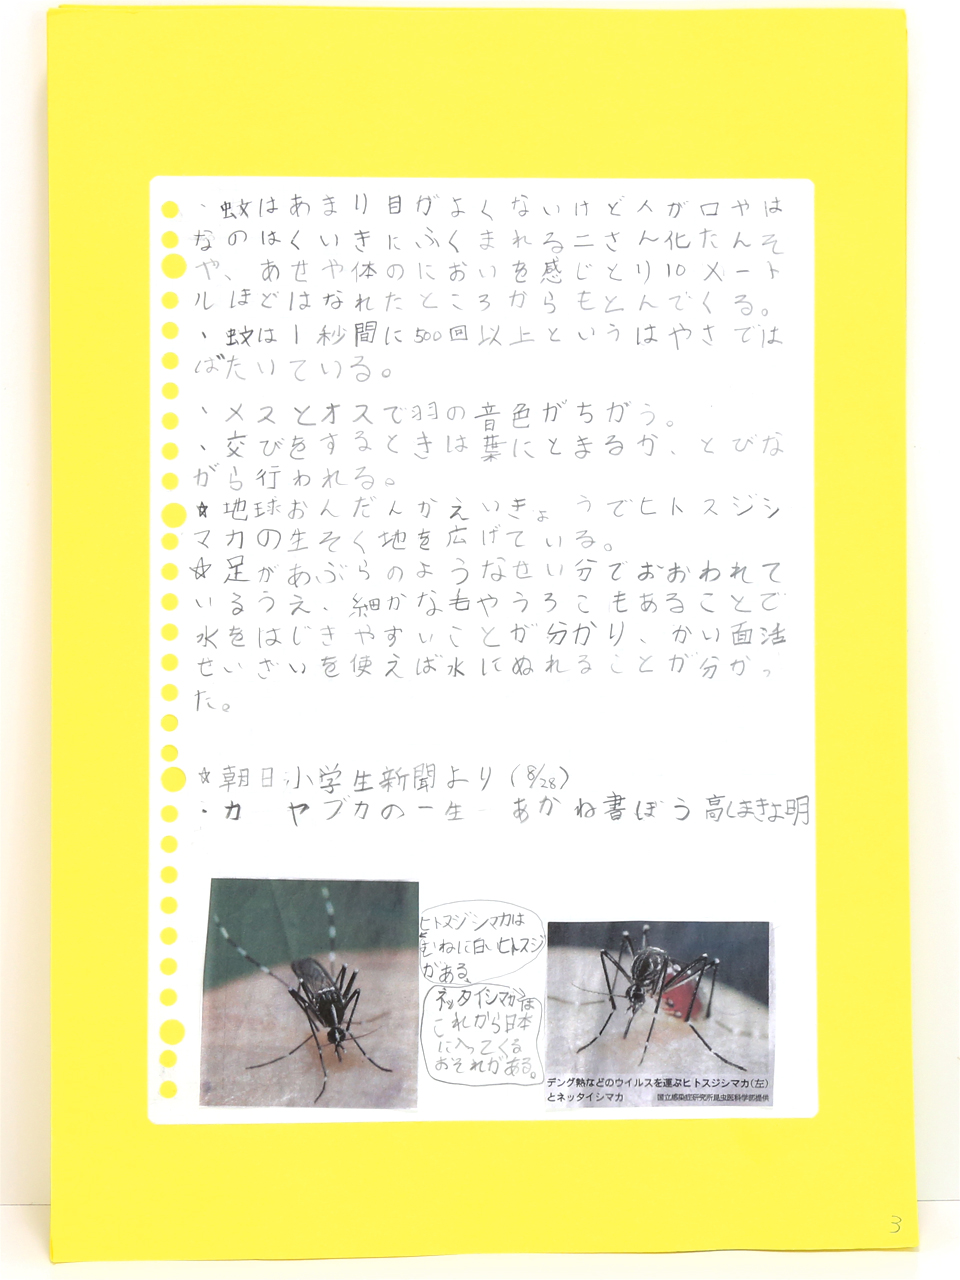 ・蚊はあまり目がよくないけど人が口やは
なのはくいきにふくまれる二さん化たんそ
や、あせや体のにおいを感じとり10メート
ルほどはなれたところからもとんでくる。
・蚊は1秒間に500回以上というはやさでは
ばたいている。
・メスとオスで羽の音色がちがう。
・交びをするときは葉にとまるか、とびな
がら行われる。
☆地球おんだんかえいきょうでヒトスジシ
マカの生そく地を広げている。
☆足があぶらのようなせい分でおおわれて
いるうえ、細かな毛やうろこもあることで
水をはじきやすいことが分かり、かい面活
せいざいを使えば水にぬれることが分かっ
た。
☆朝日小学生新聞より(8/28)
・カ ヤブカの一生 あかね書ぼう 高しまきよ明
ヒトスジシマカは
むねに白いヒトスジ
がある。
ネッタイシマカは
これから日本
に入ってくる
おそれがある。
デング熱などのウイルスを運ぶヒトスジシマカ(左)
とネッタイシマカ 国立感染症研究所昆虫医科学部提供
3